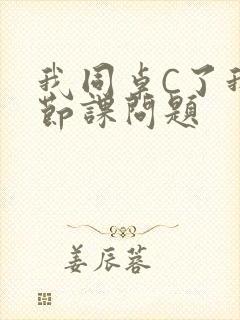 我同桌C了我
节課問題
姜辰蓉